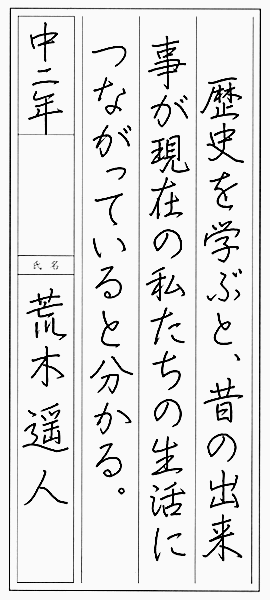 歴史を学ぶと、昔の出来
事が現在の私たちの生活に
つながっていると分かる。
中二年
氏名
荒木遥人